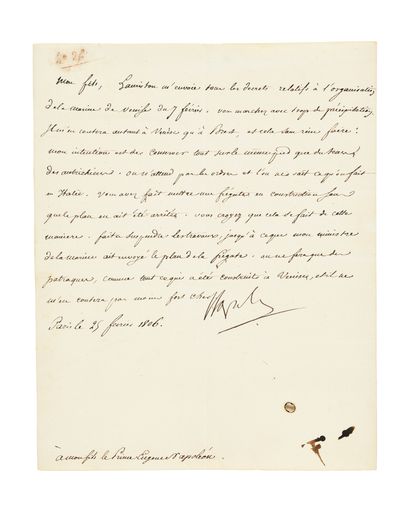 Mon fils, Lauriston m'envoie tous les decrets relatifs à l'organisation
de la marine de Venise du 7 févier. vous marchez avec trop de précipitation.
Il m'en coutera autant à Venise qu'à Brest, et cela sans rien faire:
mon intention est de conserver tout sur le même pied que du tems
des autrichiens. on n'attend pas les ordres et l'on ne sait ce qu'on fait
en Italie. vous avez fait mettre une frégate en construction sans
que le plan en ait été arrêté. vous croyez que cela se fait de cette
manière. faites suspendre les travaux, jusqu'à ce que mon ministre
de la marine ait envoyé le plan de la frégate. on ne feroit que des
patraques, comme tout ce qui a été construit à Venise, et il ne
m'en coutera pas moins fort cher.
Paris le 25 février 1806.
à mon fils le Prince Eugene Napoléon.